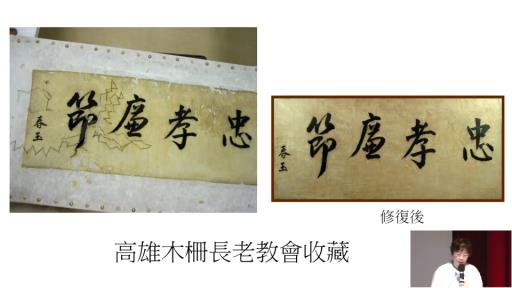 忠孝廉節
春玉
忠孝廉節
春玉
修復後
高雄木柵長老教會收藏